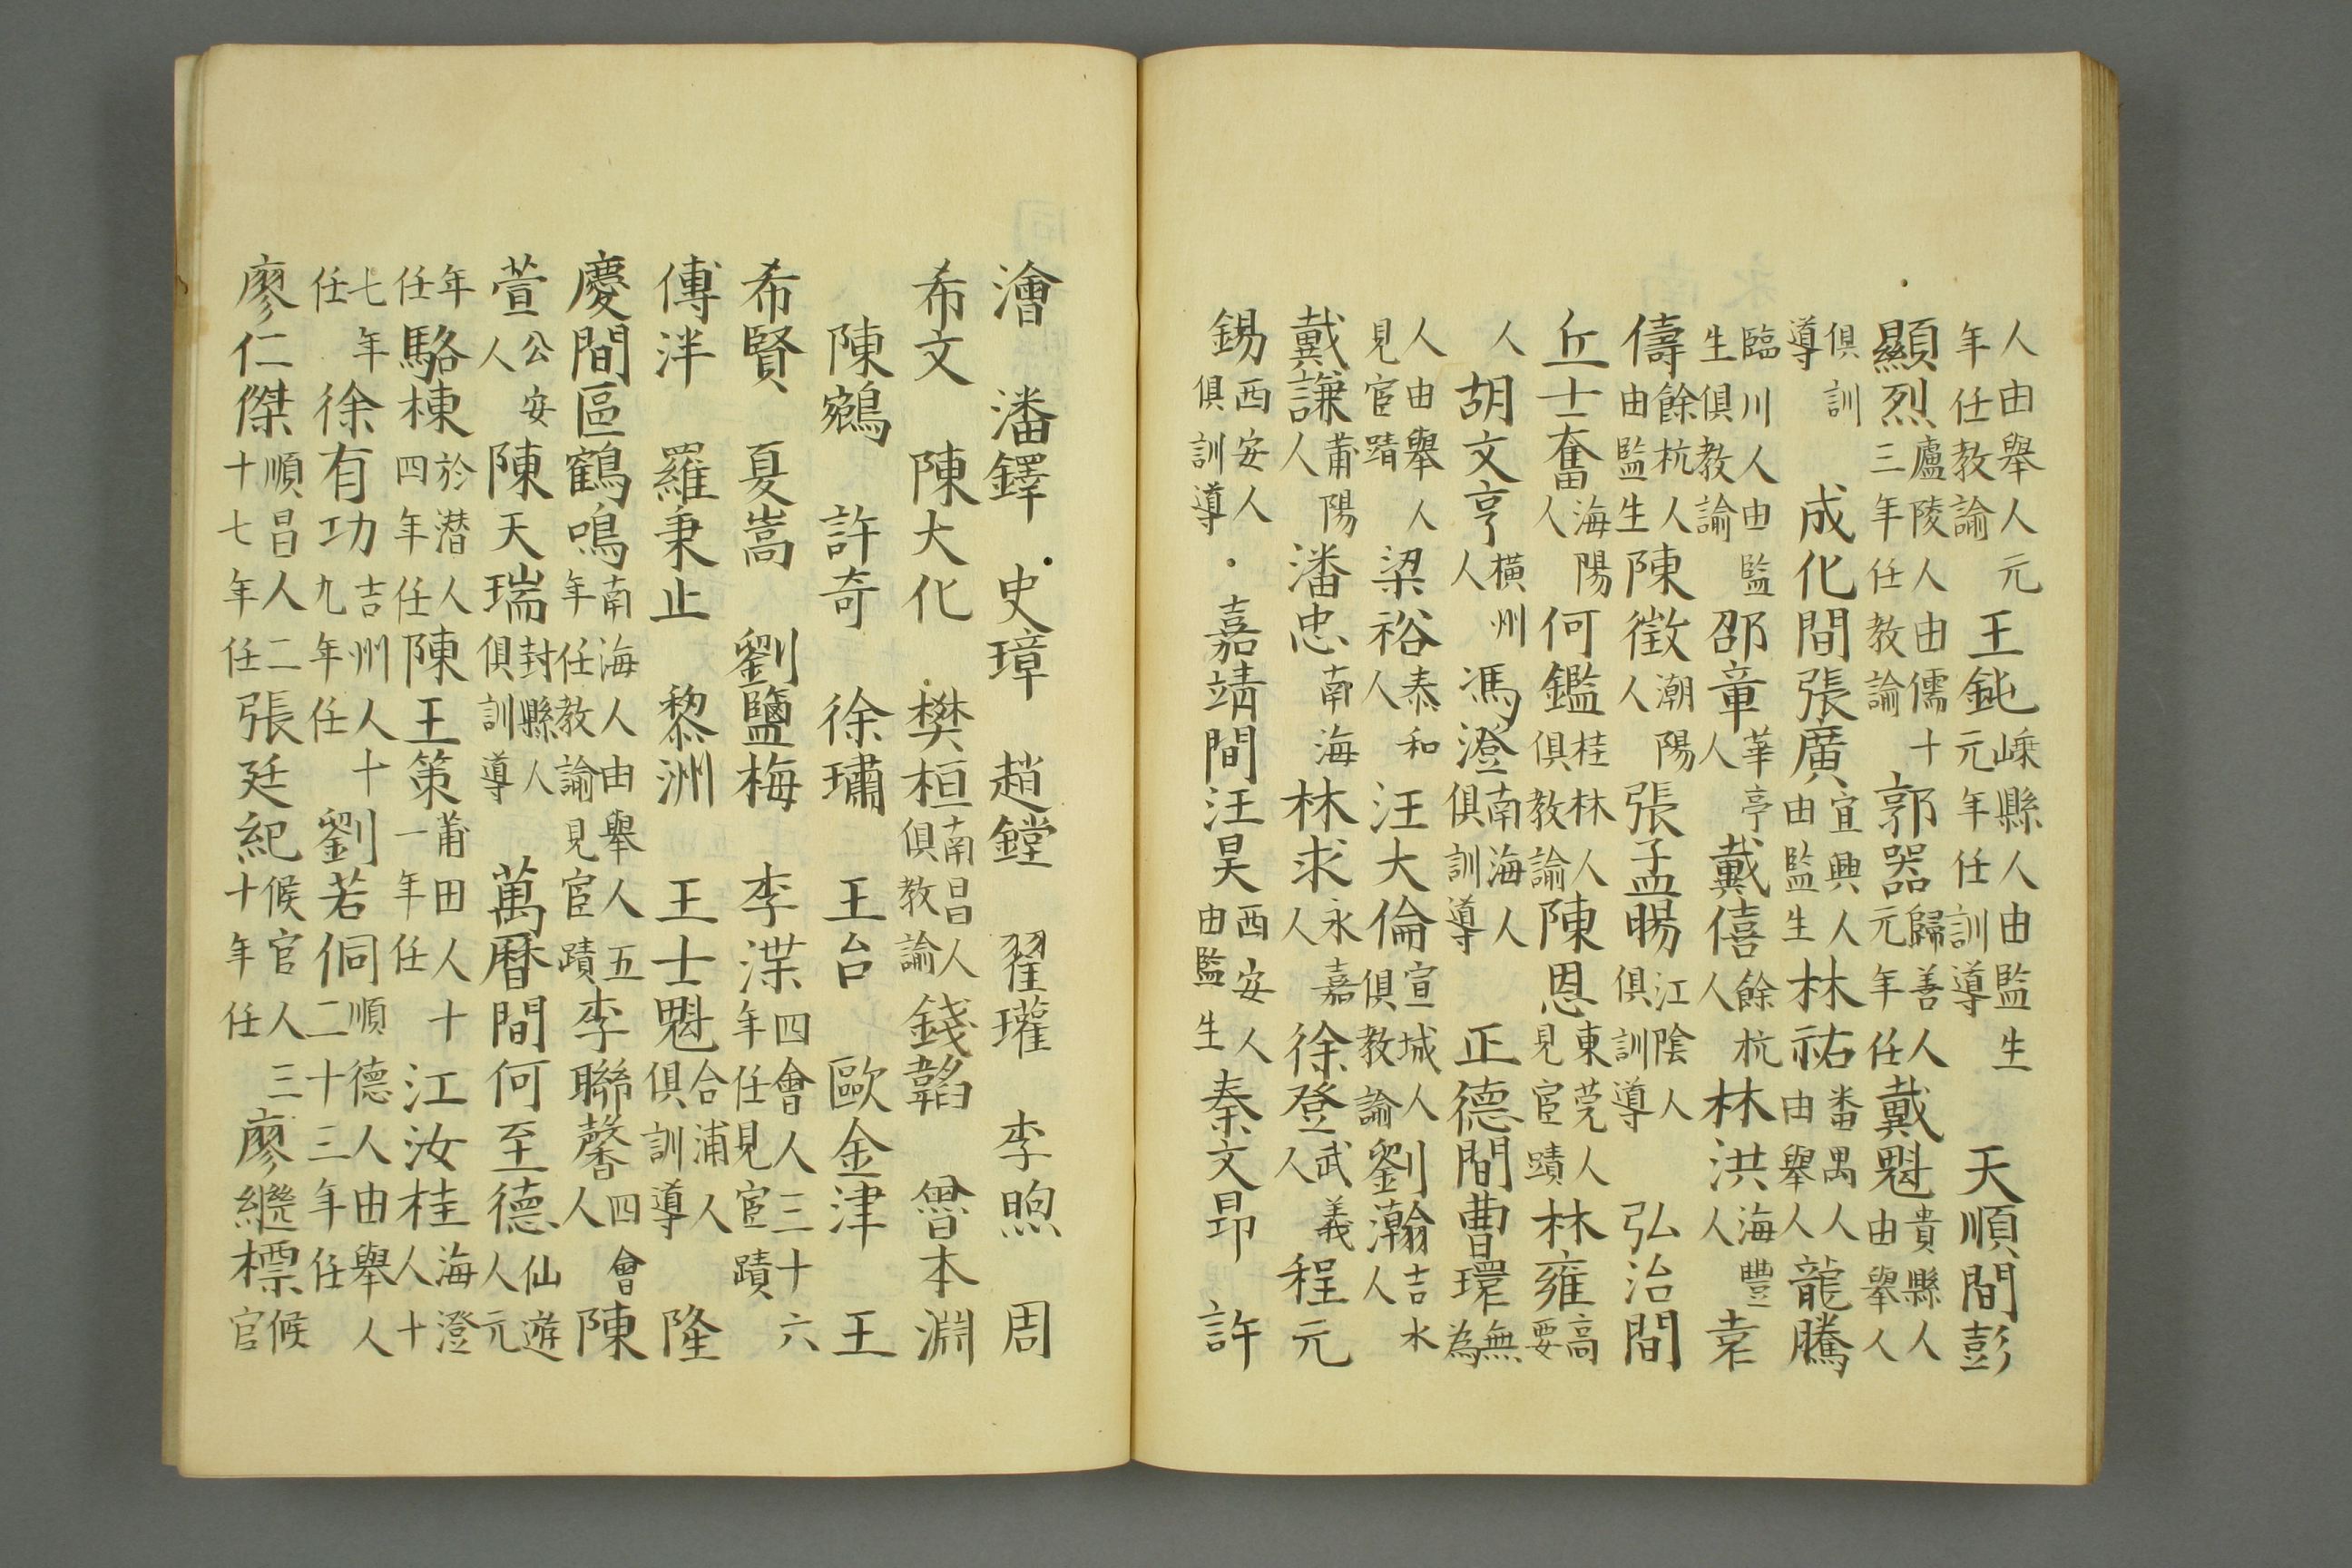 人由舉人元年任教諭 王鈍嵊縣人由監生元年任訓導 天順間彭
顯烈廬陵人由儒十三年任教諭 郭器歸善人元年任 戴魁貴縣人由舉人
俱訓導 成化間張廣宜興人由監生 林祐番禺人由舉人 龍騰
臨川人由監生俱教諭 邵章華亭人 戴僖餘杭人 林洪海豐人 袁
儔餘杭人由監生 陳徵潮陽人 張孟暘江陰人俱訓導 弘治間
丘士奮海陽人 何鑑桂林人俱教諭 陳恩東莞人見宦蹟 林雍高要
人 胡文亨橫州人 馮澄南海人俱訓導 正德間曹環無為
人由舉人見宦蹟 梁裕泰和人 汪大倫宣城人俱教諭 劉瀚吉水人
戴謙莆陽人 潘忠南海 林求永嘉人 徐登武義人 程元
錫西安人俱訓導 嘉靖間汪昊西安人由監生 秦文昂 許
澮 潘鐸 史璋 趙鏜 翟瓘 李煦 周
希文 陳大化 樊桓南昌人俱教諭 錢韜 曾本淵
陳鵷 許奇 徐璛 王台 歐金津 王
希賢 夏嵩 劉鹽梅 李渫四會人三十六年任見宦蹟
傅泮 羅秉止 黎洲 王士魁合浦人俱訓導 隆
慶間區鶴鳴南海人由舉人五年任教諭見宦蹟 李聯馨四會人 陳
萱公安人 陳天瑞封縣人俱訓導 萬曆間何至德仙遊人元
年任 駱棟於潛人四年任 陳王策莆田人十一年任 江汝桂海澄人十
七年任 徐有功吉州人十九年任 劉若侗順德人由舉人二十三年任
廖仁傑順昌人二十七年任 張廷紀候官人三十年任 廖繼標候官